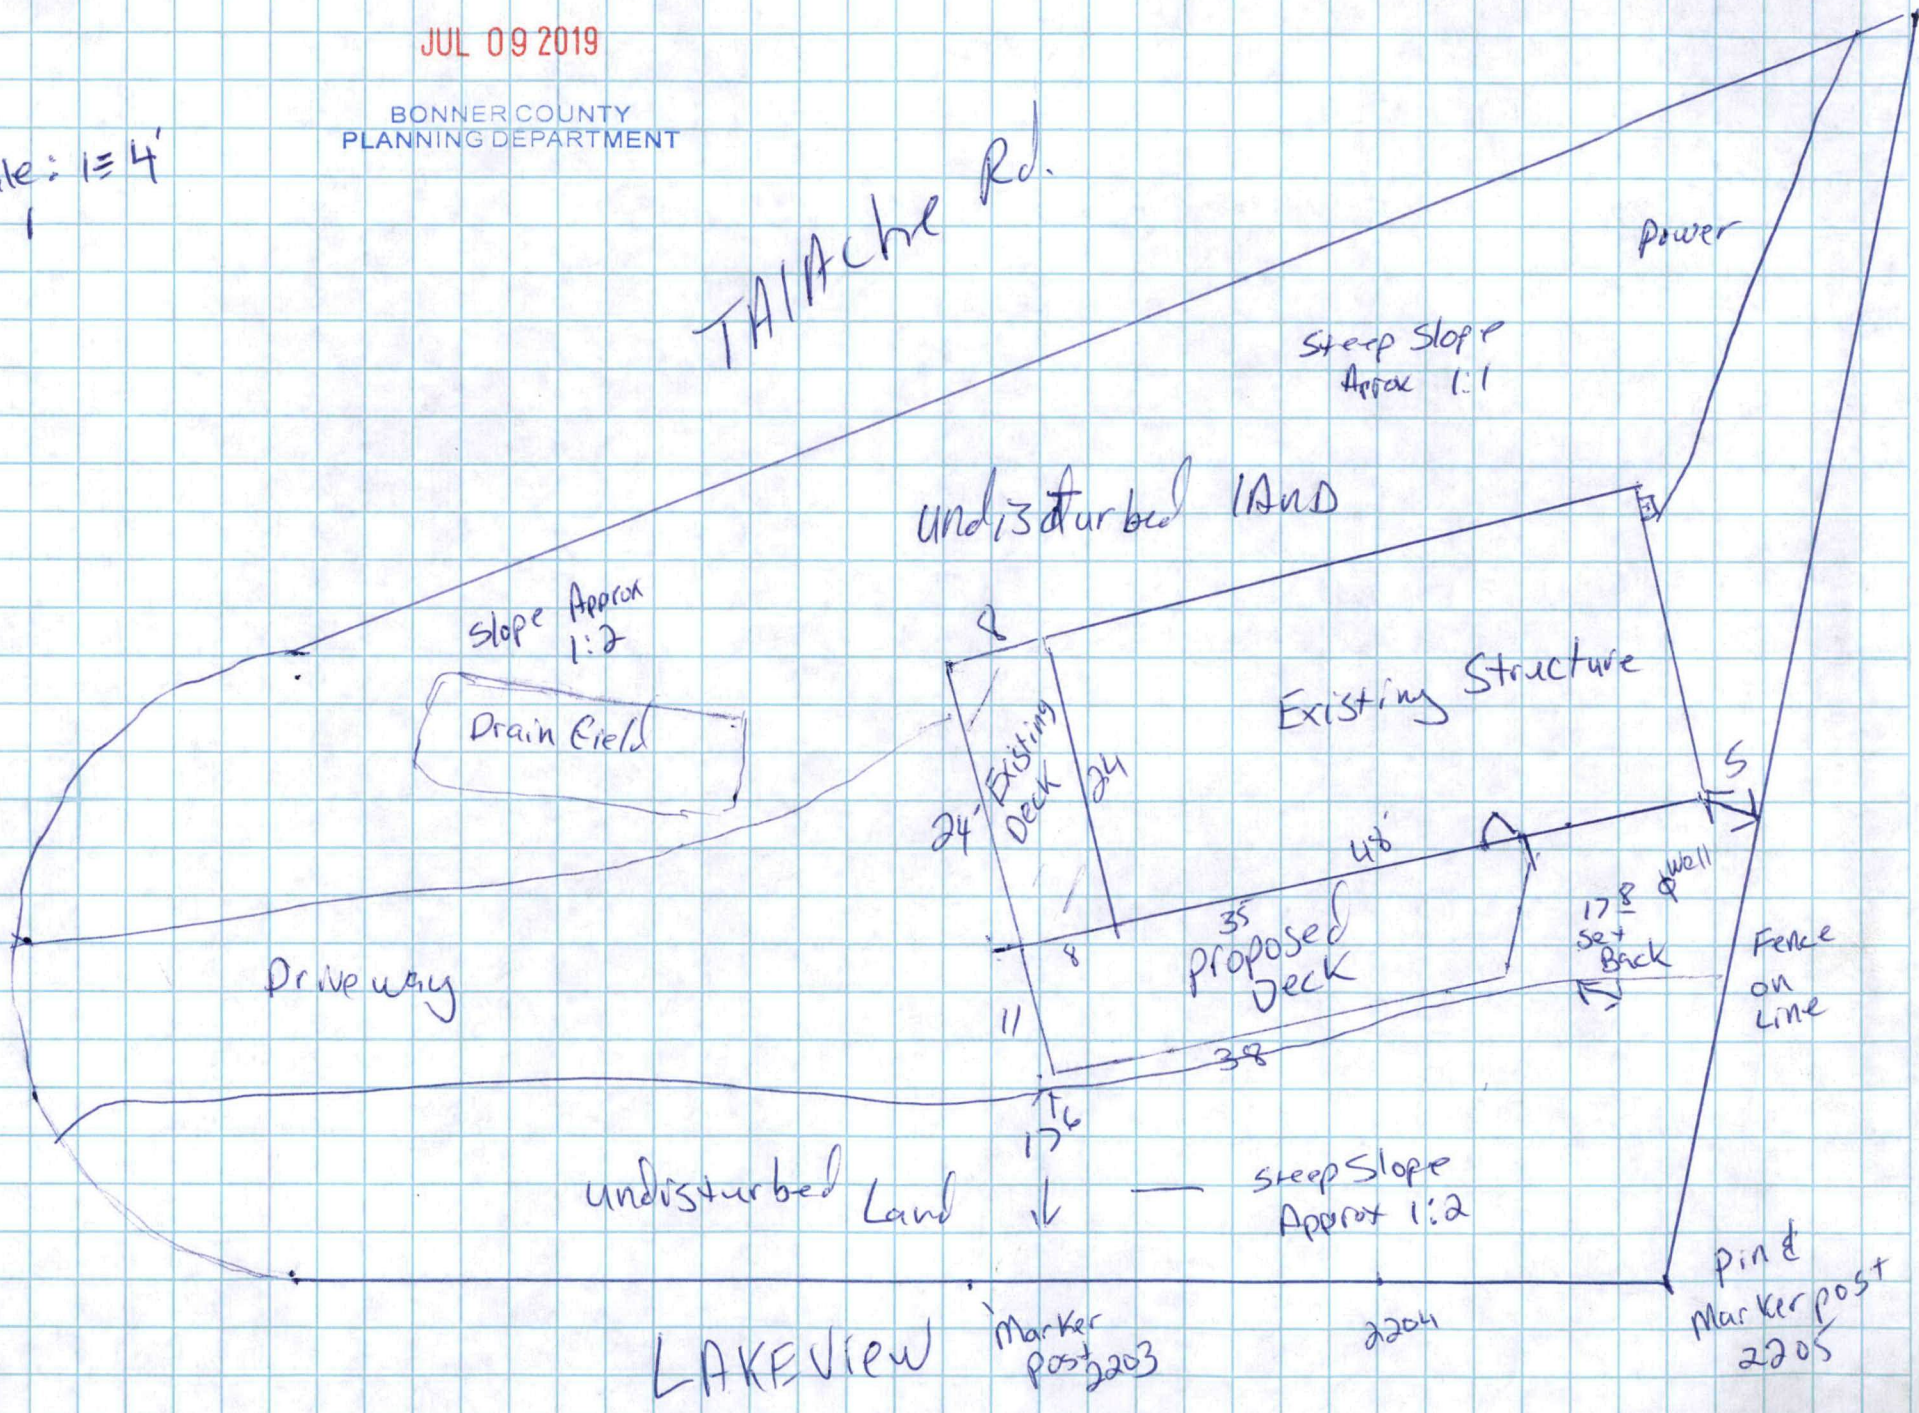 JUL 09 2019
BONNER COUNTY
PLANNING DEPARTMENT
le: 1 = 4'
1
TAlAche Rd.
Power
Steep Slope
Aprox 1:1
undisturbed lAND
Slope Approx
1:2
Drain field
8
Existing Structure
Existing
Deck
24
24
5
48'
35
proposed
Deck
8
11
38
Well
17 8
Set
Back
Fence
on
Line
Driveway
17 6
undisturbed Land
Steep Slope
Approx 1:2
LAKEVIEW
Marker
post 2203
2204
pin &
Marker post
2205